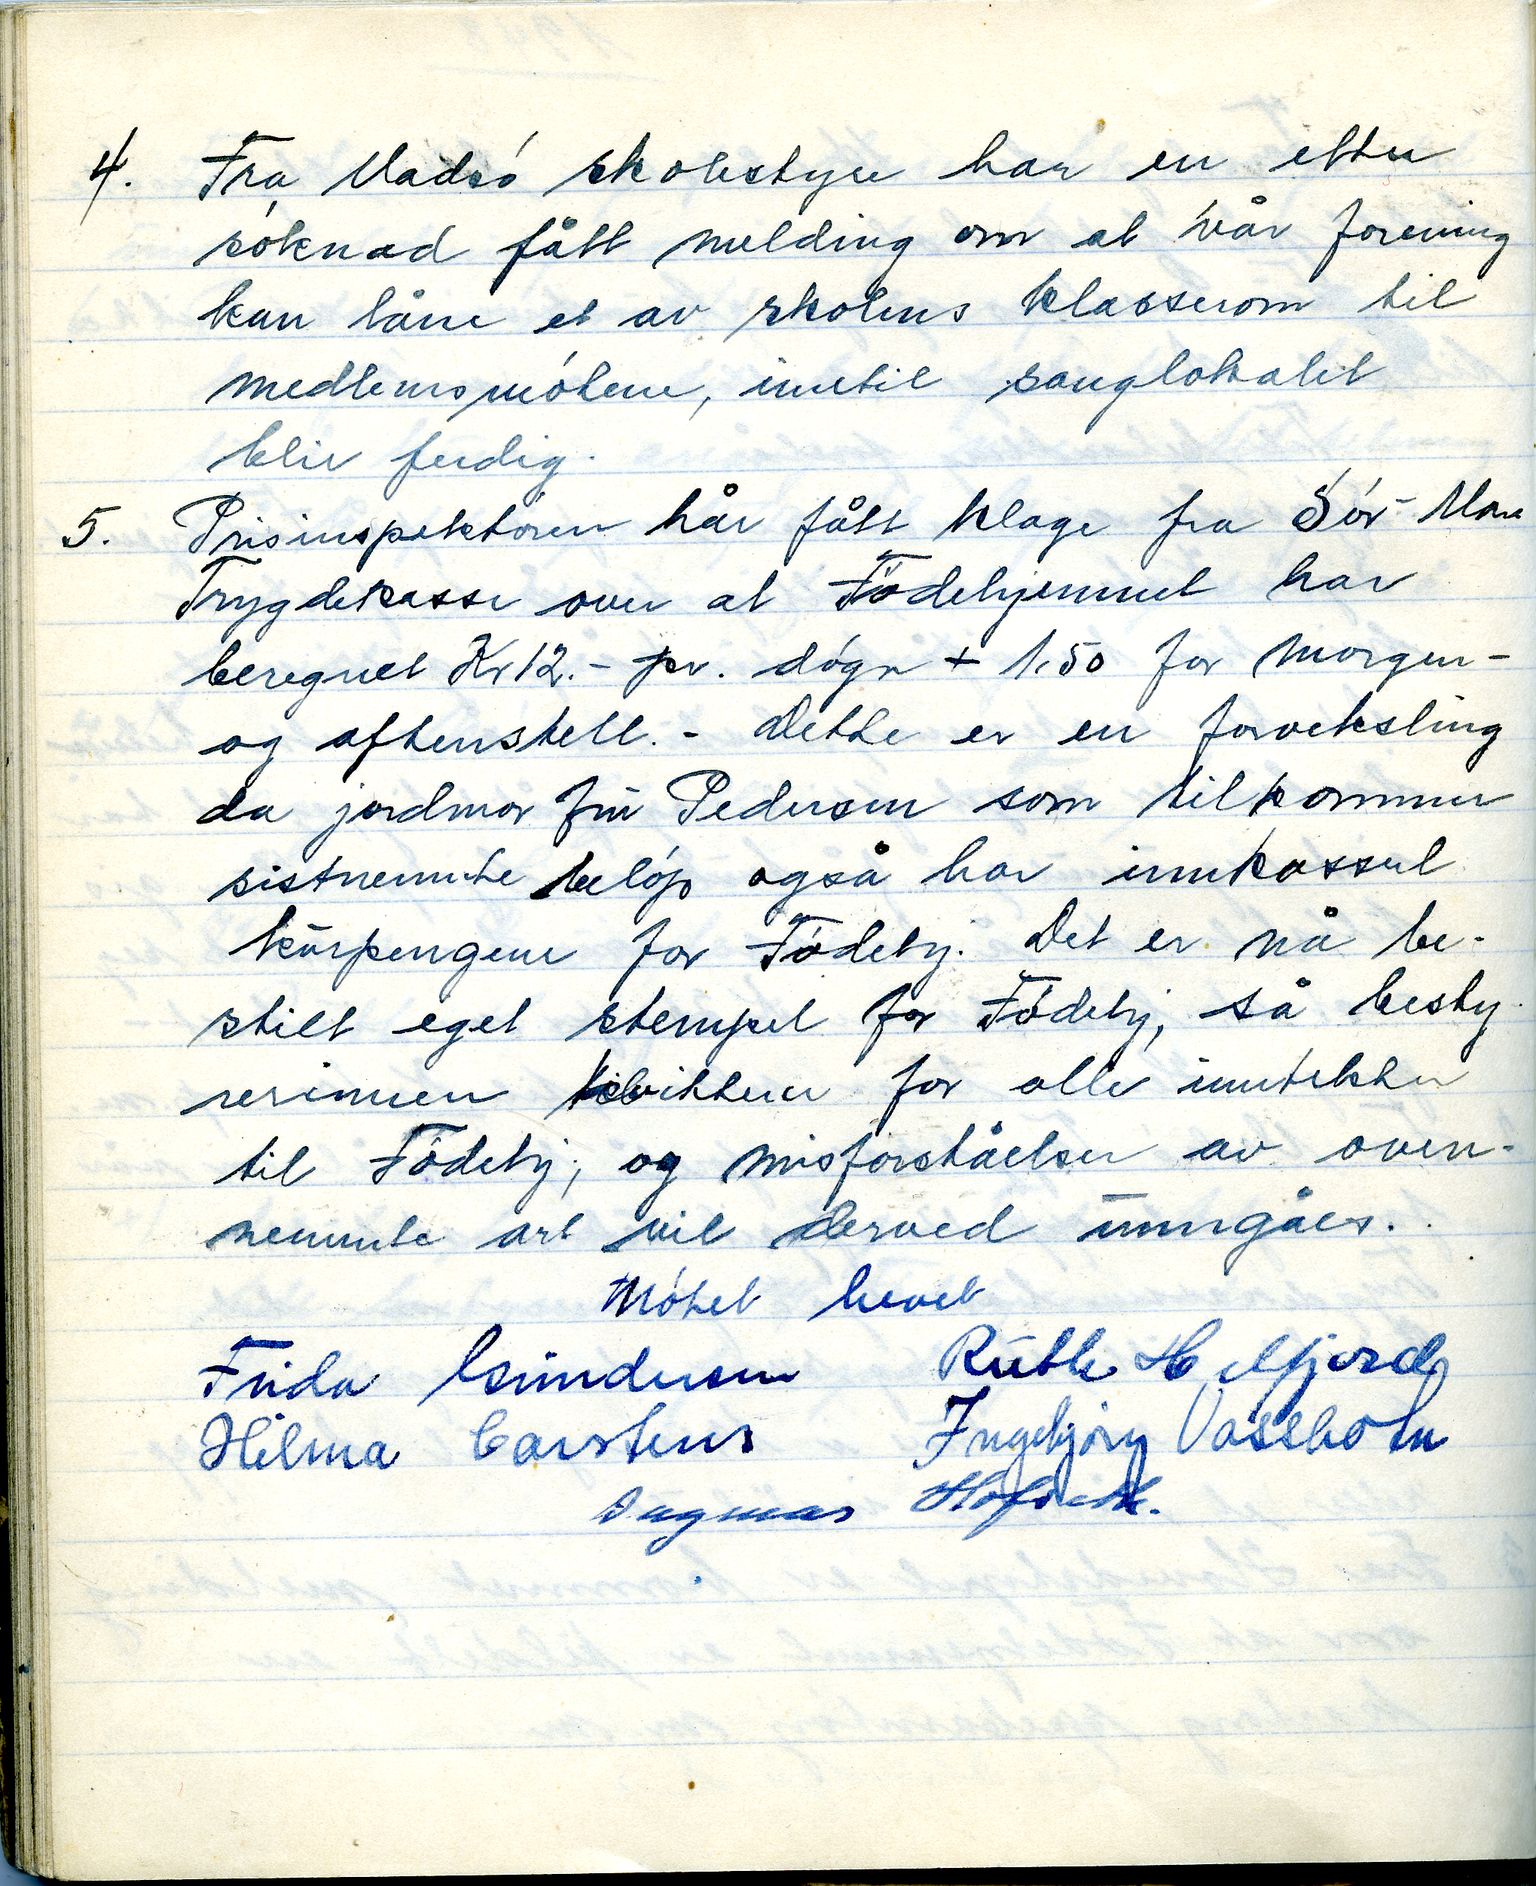 4. Fra Vadsó skolestyre har en etter
sóknad fått melding om at vår forening
kan låne et av skolens klasserom til
medlemsmótene, inntil sanglokalet
blir ferdig.
5. Prisinspektóren hår fått klage fra Sór-
Trygdekasse over at Fódehjemmet har
beregnet Kr 12.- pr. dógn + 1.50 for morgen-
og aftenstell. - Dette er en forveksling
da jordmor frú Pedersen som tilkommer
sistnevnte belóp også har innkassert
kúrpengene for Fódehj. Det er nå be-
stilt eget stempel for Fódehj, så besty-
rerinnen kvitterer for alle inntekter
til Fódehj, og misforståelser av oven-
nevnte art vil derved unngåes.
Mótet hevet
Frida Gundersen Ruth H.
Hilma Carstens Ingebjórg Vassbotn
Dagmar